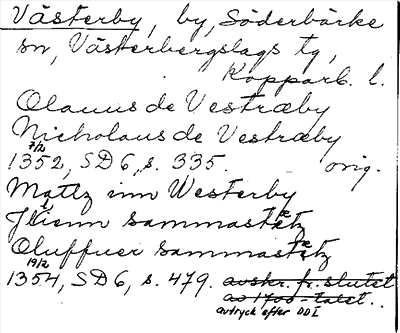 Västerby, by, Söderbärke
sn, Västerbergslags tg,
Kopparb. l.
Olauus de Vestræby
Nicholaus de Vestræby
7/2
1352, SD 6, s. 335. orig.
Matlz inn Westerby
sammastatz
Oluffuer sammastatz
19/2
1354, SD 6, s. 479. avskr. fr. slutet
av 1400-talet..
avtryck efter DD I